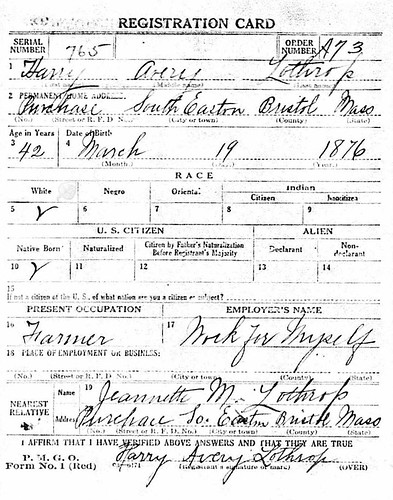 REGISTRATION CARD
SERIAL NUMBER 765 ORDER NUMBER A73
1 Harry Avery Lothrop
(Middle name)
2 PERMANENT HOME ADDRESS:
Purchase South Easton Bristol Mass
(No.) (Street or R. F. D. No.) (City or town) (County) (State)
Age in Years Date of Birth
3 42 4 March 19 1876
(Month.) (Day.) (Year.)
RACE
White Negro Oriental Indian
Citizen Noncitizen
5 ✓ 6 7 8 9
U. S. CITIZEN ALIEN
Native Born Naturalized Citizen by Father's Naturalization Before Registrant's Majority Declarant Non-declarant
10 ✓ 11 12 13 14
15
If not a citizen of the U. S., of what nation are you a citizen or subject?
PRESENT OCCUPATION EMPLOYER'S NAME
16 Farmer 17 Work for Myself
18 PLACE OF EMPLOYMENT OR BUSINESS:
(No.) (Street or R. F. D. No.) (City or town) (County) (State)
NEAREST RELATIVE Name 19 Jeannette M. Lothrop
Address 20 Purchace So. Easton Bristol Mass
(No.) (Street or R. F. D. No.) (City or town) (County) (State)
I AFFIRM THAT I HAVE VERIFIED ABOVE ANSWERS AND THAT THEY ARE TRUE
P. M. G. O.
Form No. 1 (Red) Harry Avery Lothrop
(Registrant's signature or mark) (OVER)